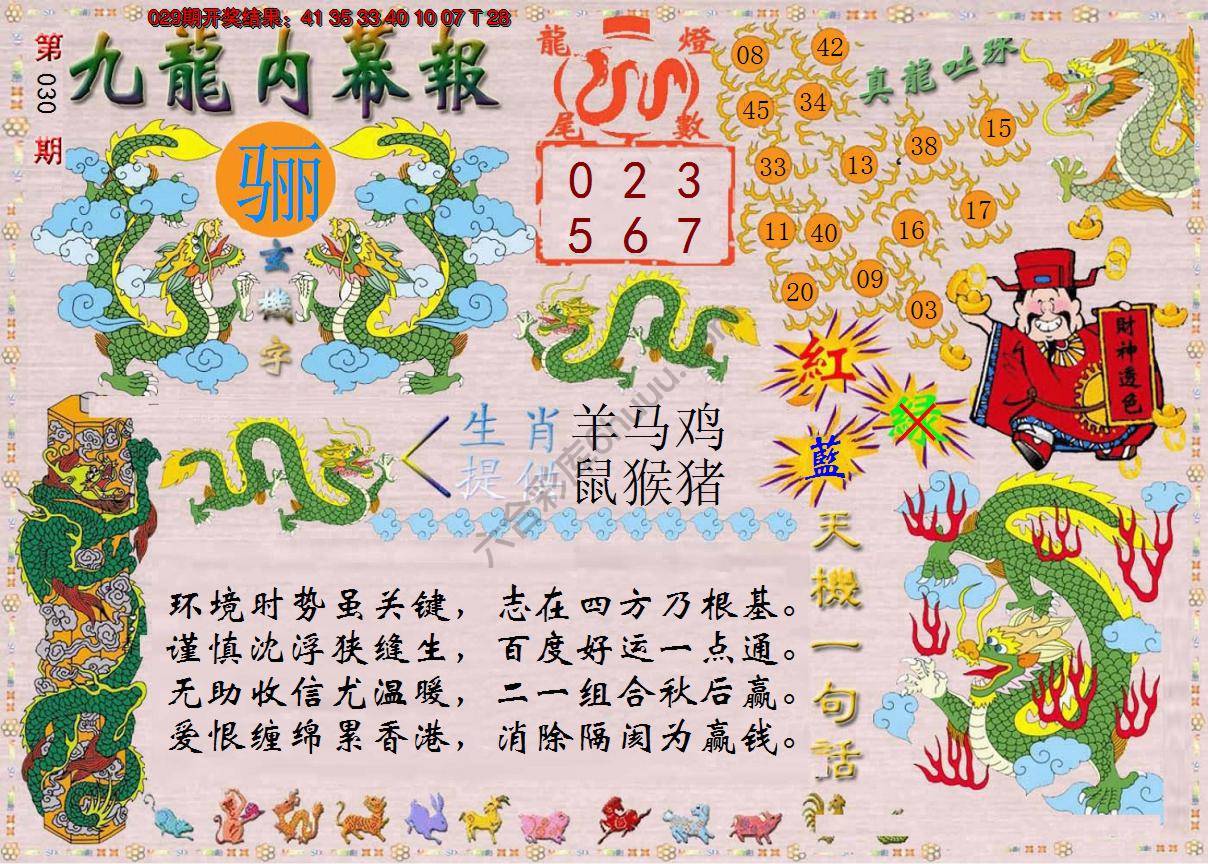 029期开奖结果：41 35 33 40 10 07 T 28
第030期
九龍内幕報
骊
玄機字
龍燈
尾數
0 2 3
5 6 7
真龍吐珠
08 42
45 34
33 13 38 15
11 40 16 17
20 09 03
財神透色
紅
绿
藍
生肖 羊马鸡
提供 鼠猴猪
天機一句話
环境时势虽关键，志在四方乃根基。
谨慎沈浮狭缝生，百度好运一点通。
无助收信尤温暖，二一组合秋后赢。
爱恨缠绵累香港，消除隔阂为赢钱。